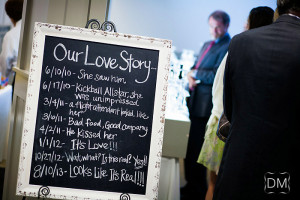 Our Love Story...
6/10/10 - She saw him,
6/17/10 - Kickball Allstar, she
was unimpressed
3/4/11 - a flight attendant looked like
her
3/10/11 - Bad food, Good company
4/2/11 - He kissed her
1/1/12 - It's Love!!!
10/27/12 - Wait, what? Is this real? Yes!!
8/10/13 - Looks Like It's Real!!!!
DM